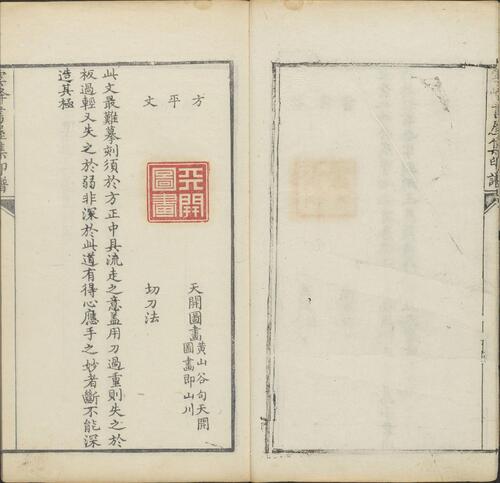 方平文
天開圖畫
天開圖畫
黄山谷句天開
圖畫即山川
切刀法
此文最難摹刻須於方正中具流走之意蓋用刀過重則失之於
板過輕又失之於弱非深於此道有得心應手之妙者斷不能深
造其極
書屋集印譜